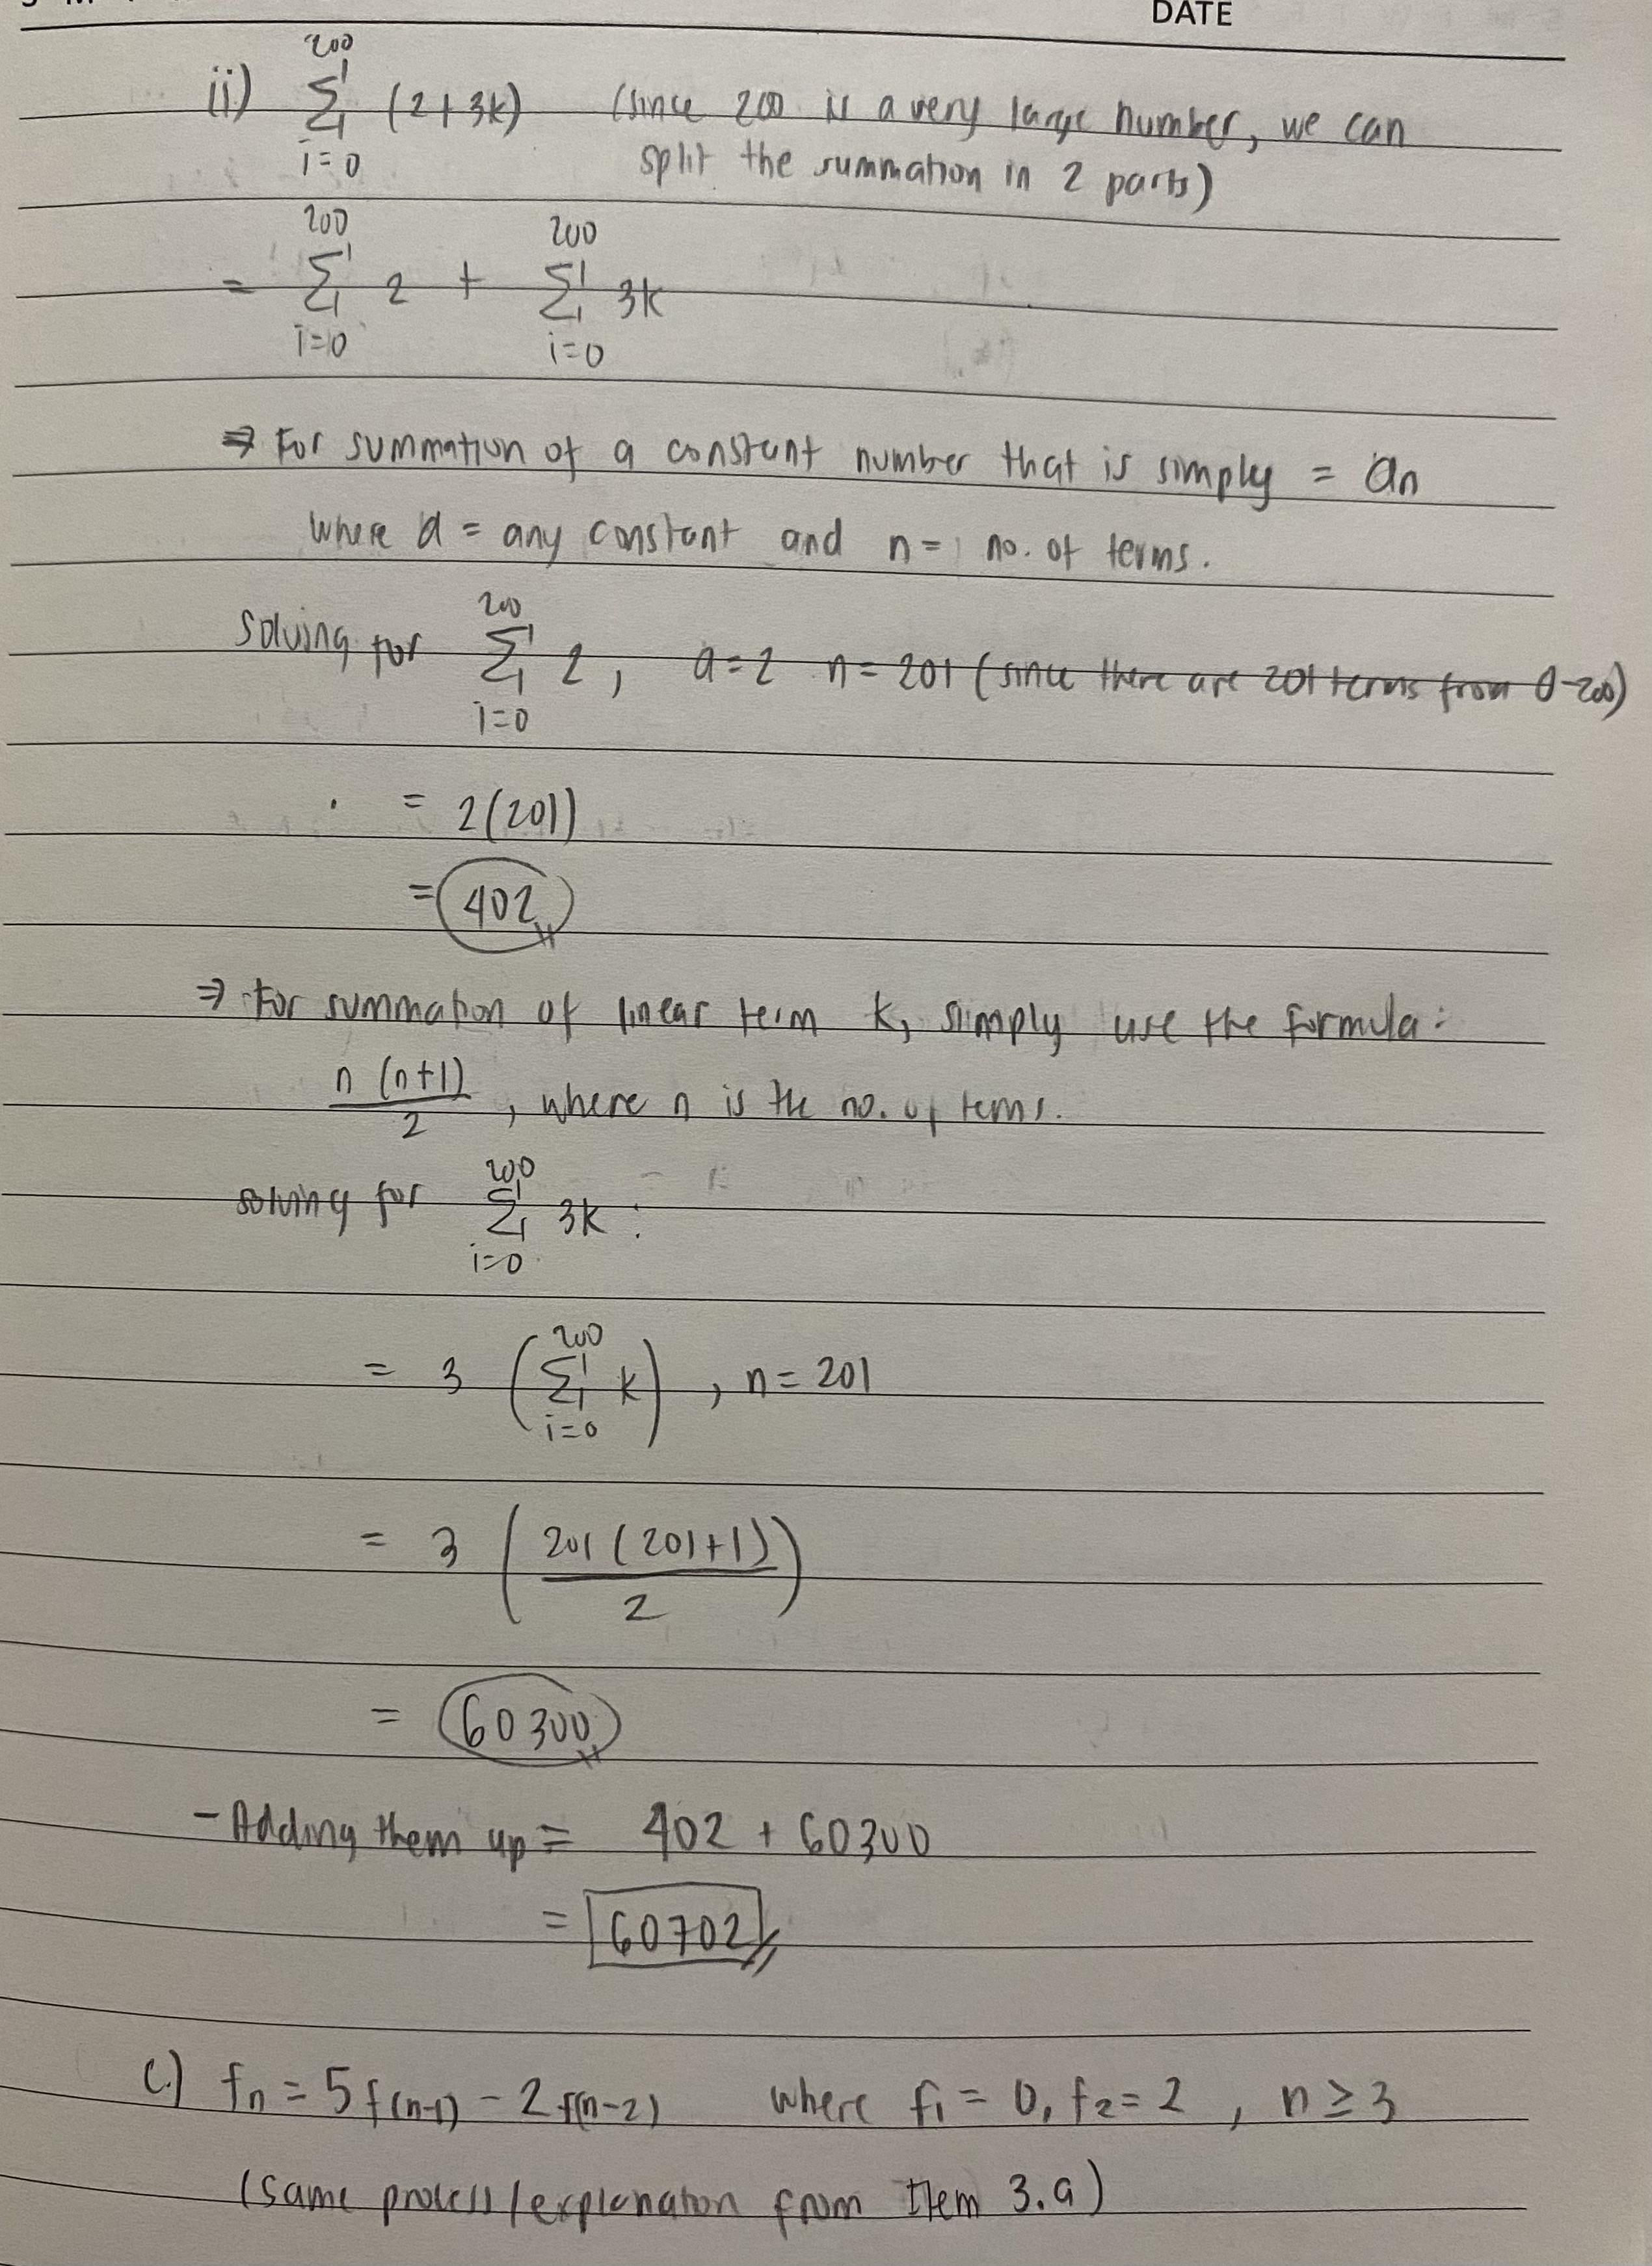 DATE
ii) 200 Σ i=0 (2+3k) (since 200 is a very large number, we can
split the summation in 2 parts)
= 200 Σ i=0 2 + 200 Σ i=0 3k
⇒ For summation of a constant number that is simply = an
where a = any constant and n = no. of terms.
solving for 200 Σ i=0 2, a=2 n=201 (since there are 201 terms from 0-200)
= 2(201)
= 402
⇒ For summation of linear term k, simply use the formula:
n(n+1)/2, where n is the no. of terms.
solving for 200 Σ i=0 3k:
= 3 (200 Σ i=0 k), n=201
= 3 (201(201+1)/2)
= 60300
- Adding them up = 402 + 60300
= 60702
c.) fn = 5f(n-1) - 2f(n-2) where f1 = 0, f2 = 2, n ≥ 3
(same process/explanation from Item 3.a)